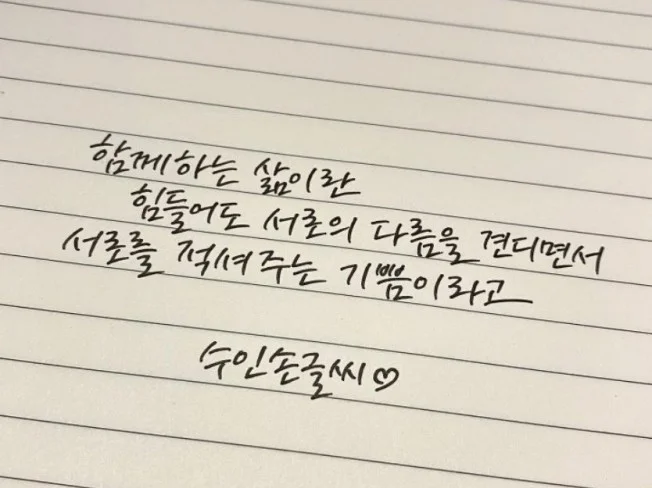 함께하는 삶이란
힘들어도 서로의 다름을 견디면서
서로를 적셔주는 기쁨이라고
수인손글씨♡